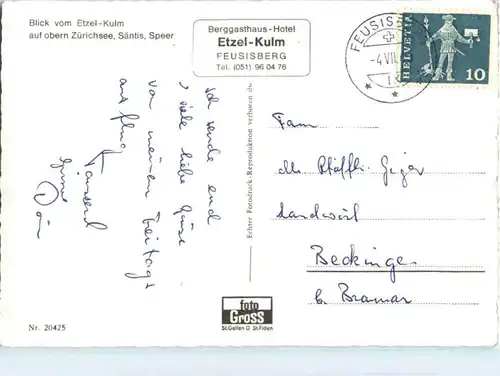 Blick vom Etzel-Kulm
auf obern Zürichsee, Säntis, Speer
Berggasthaus-Hotel
Etzel-Kulm
FEUSISBERG
Tel. (051) 96 04 76
FEUSISB
-4.VII.
HELVETIA
10
Ich sende euch
viele liebe Grüsse
von meinem Freitags
ausflug
Tausend
Echter Fotodruck-Reproduktion verboten
Fam
Pfäffli-Giger
Landwirt
Beckingen
b. Bramar
foto
Gross
St. Gallen O St. Fiden
Nr. 20425